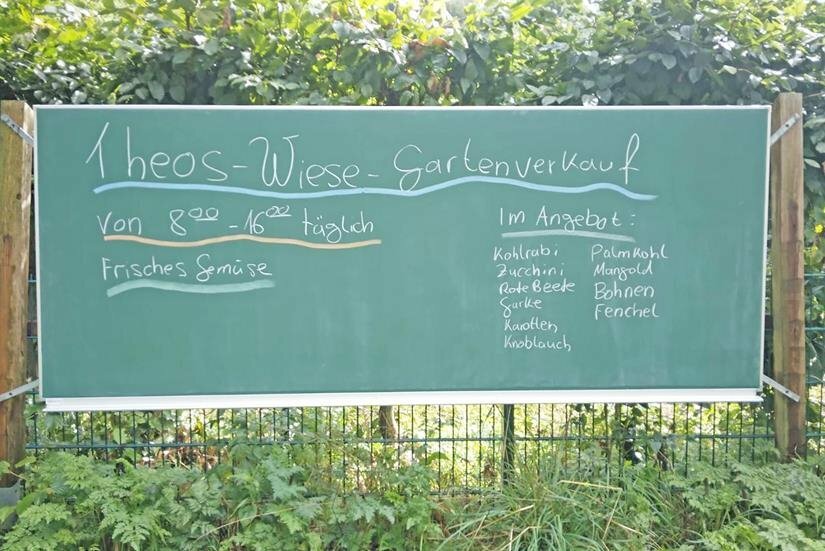 Theos-Wiese-Gartenverkauf
Von 8⁰⁰ - 16⁰⁰ täglich
Frisches Gemüse
Im Angebot:
Kohlrabi
Zucchini
Rote Beete
Gurke
Karotten
Knoblauch
Palmkohl
Mangold
Bohnen
Fenchel